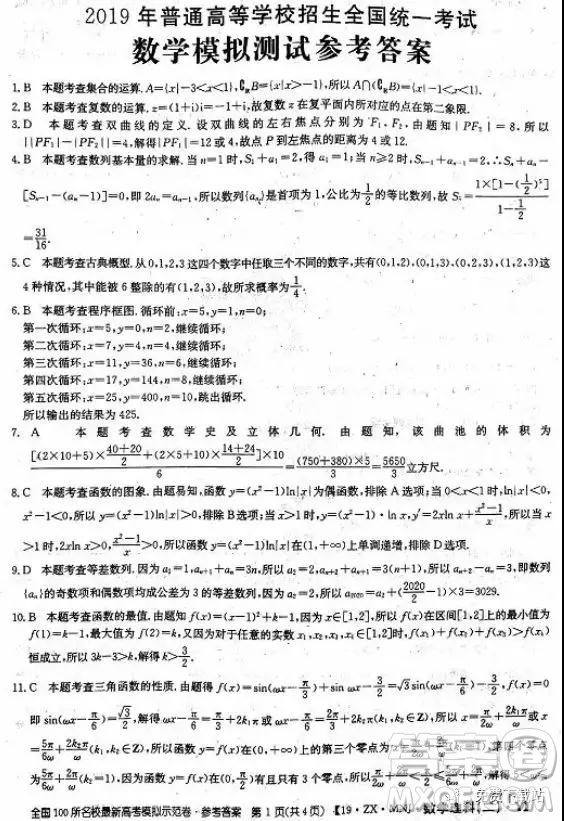 2019年普通高等学校招生全国统一考试
数学模拟测试参考答案
1. B 本题考查集合的运算. A={x|-3<x<1},∁RB={x|x>-1},所以A∩(∁RB=(-1,1).
2. B 本题考查复数的运算. z=(1+i)i=-1+i,故复数z在复平面内所对应的点在第二象限.
3. D 本题考查双曲线的定义. 设双曲线的左右焦点分别为F₁、F₂,由题知|PF₂|=8,所以
||PF₁|-|PF₂||=4,解得|PF₁|=12或4,故点P到左焦点的距离为4或12.
4. B 本题考查数列基本量的求解. 当n=1时,S₁+a₁=2,得a₁=1;当n≥2时,Sₙ₋₁+aₙ₋₁=2,∴Sₙ+aₙ-
[Sₙ₋₁-(aₙ-1)]=0,即2aₙ=aₙ₋₁,所以数列{aₙ}是首项为1,公比为1/2的等比数列,故S₅=1×[1-(1/2)⁵]/(1-1/2)
=31/16.
5. C 本题考查古典概型. 从0,1,2,3这四个数字中任取三个不同的数字,共有(0,1,2),(0,1,3),(0,2,3),(1,2,3)这
4种情况,其中能被6整除的有(1,2,3),故所求概率为1/4.
6. B 本题考查程序框图. 循环前:x=5,y=1,n=0;
第一次循环:x=5,y=0,n=2,继续循环;
第二次循环:x=7,y=4,n=4,继续循环;
第三次循环:x=11,y=36,n=6,继续循环;
第四次循环:x=17,y=144,n=8,继续循环;
第五次循环:x=25,y=400,n=10,跳出循环.
所以输出的结果为425.
7. A 本题考查数学史及立体几何. 由题知,该曲池的体积为
[(2×10+5)×(40+20)/2+(2×5+10)×(14+24)/2]×10/6=(750+380)×5/3=5650/3立方尺.
8. C 本题考查函数的图象. 由题易知,函数y=(x²-1)ln|x|为偶函数,排除A选项;当0<x<1时,ln|x|<0,
x²-1<0,所以y=(x²-1)ln|x|>0,排除B选项;当x>1时,y=(x²-1)·ln x,y′=2xln x+(x²-1)/x,所以当x
>1时,2xln x>0,(x²-1)/x>0,所以函数y=(x²-1)ln|x|在(1,+∞)上单调递增,排除D选项.
9. D 本题考查等差数列. 因为a₂=1,aₙ₊₁+aₙ=3n,所以aₙ₊₂+aₙ₊₁=3(n+1),所以aₙ₊₂-aₙ=3,即数列
{aₙ}的奇数项和偶数项均成公差为3的等差数列,因为a₂=2,所以a₂₀₂₀=2+(2020/2-1)×3=3029.
10. B 本题考查函数的最值. 由题知f(x)=(x-1)²+k-1,因为x∈[1,2],所以f(x)在区间[1,2]上的最小值为
f(1)=k-1,最大值为f(2)=k,又因为对于任意的实数x₁,x₂,x₃,x₁,x₂,x₃∈[1,2],f(x₁)+f(x₂)>f(x₃)
恒成立,所以3k-3>k,解得k>3/2.
11. C 本题考查三角函数的性质. 由题得f(x)=sin(ωx-π/3)+sin ωx-√3/2=√3sin(ωx-π/6)-3/2,f(x)=0
即sin(ωx-π/6)=√3/2,解得ωx-π/6=π/3+2k₁π或ωx-π/6=2π/3+2k₂π(k₁,k₂∈Z),所以x=π/2ω+2k₁π/ω或x
=5π/6ω+2k₂π/ω(k₁,k₂∈Z),所以函数f(x)在(0,+∞)上的第三个零点为π/2ω+2π/ω,第四个零点
为5π/6ω+2π/ω,因为函数f(x)在(0,2)有且只有3个零点,所以
全国100所名校最新高考模拟示范卷·参考答案 第1页(共4页) 【19·ZX·MNJ·数学理科(二)
免费下载站
答案圈